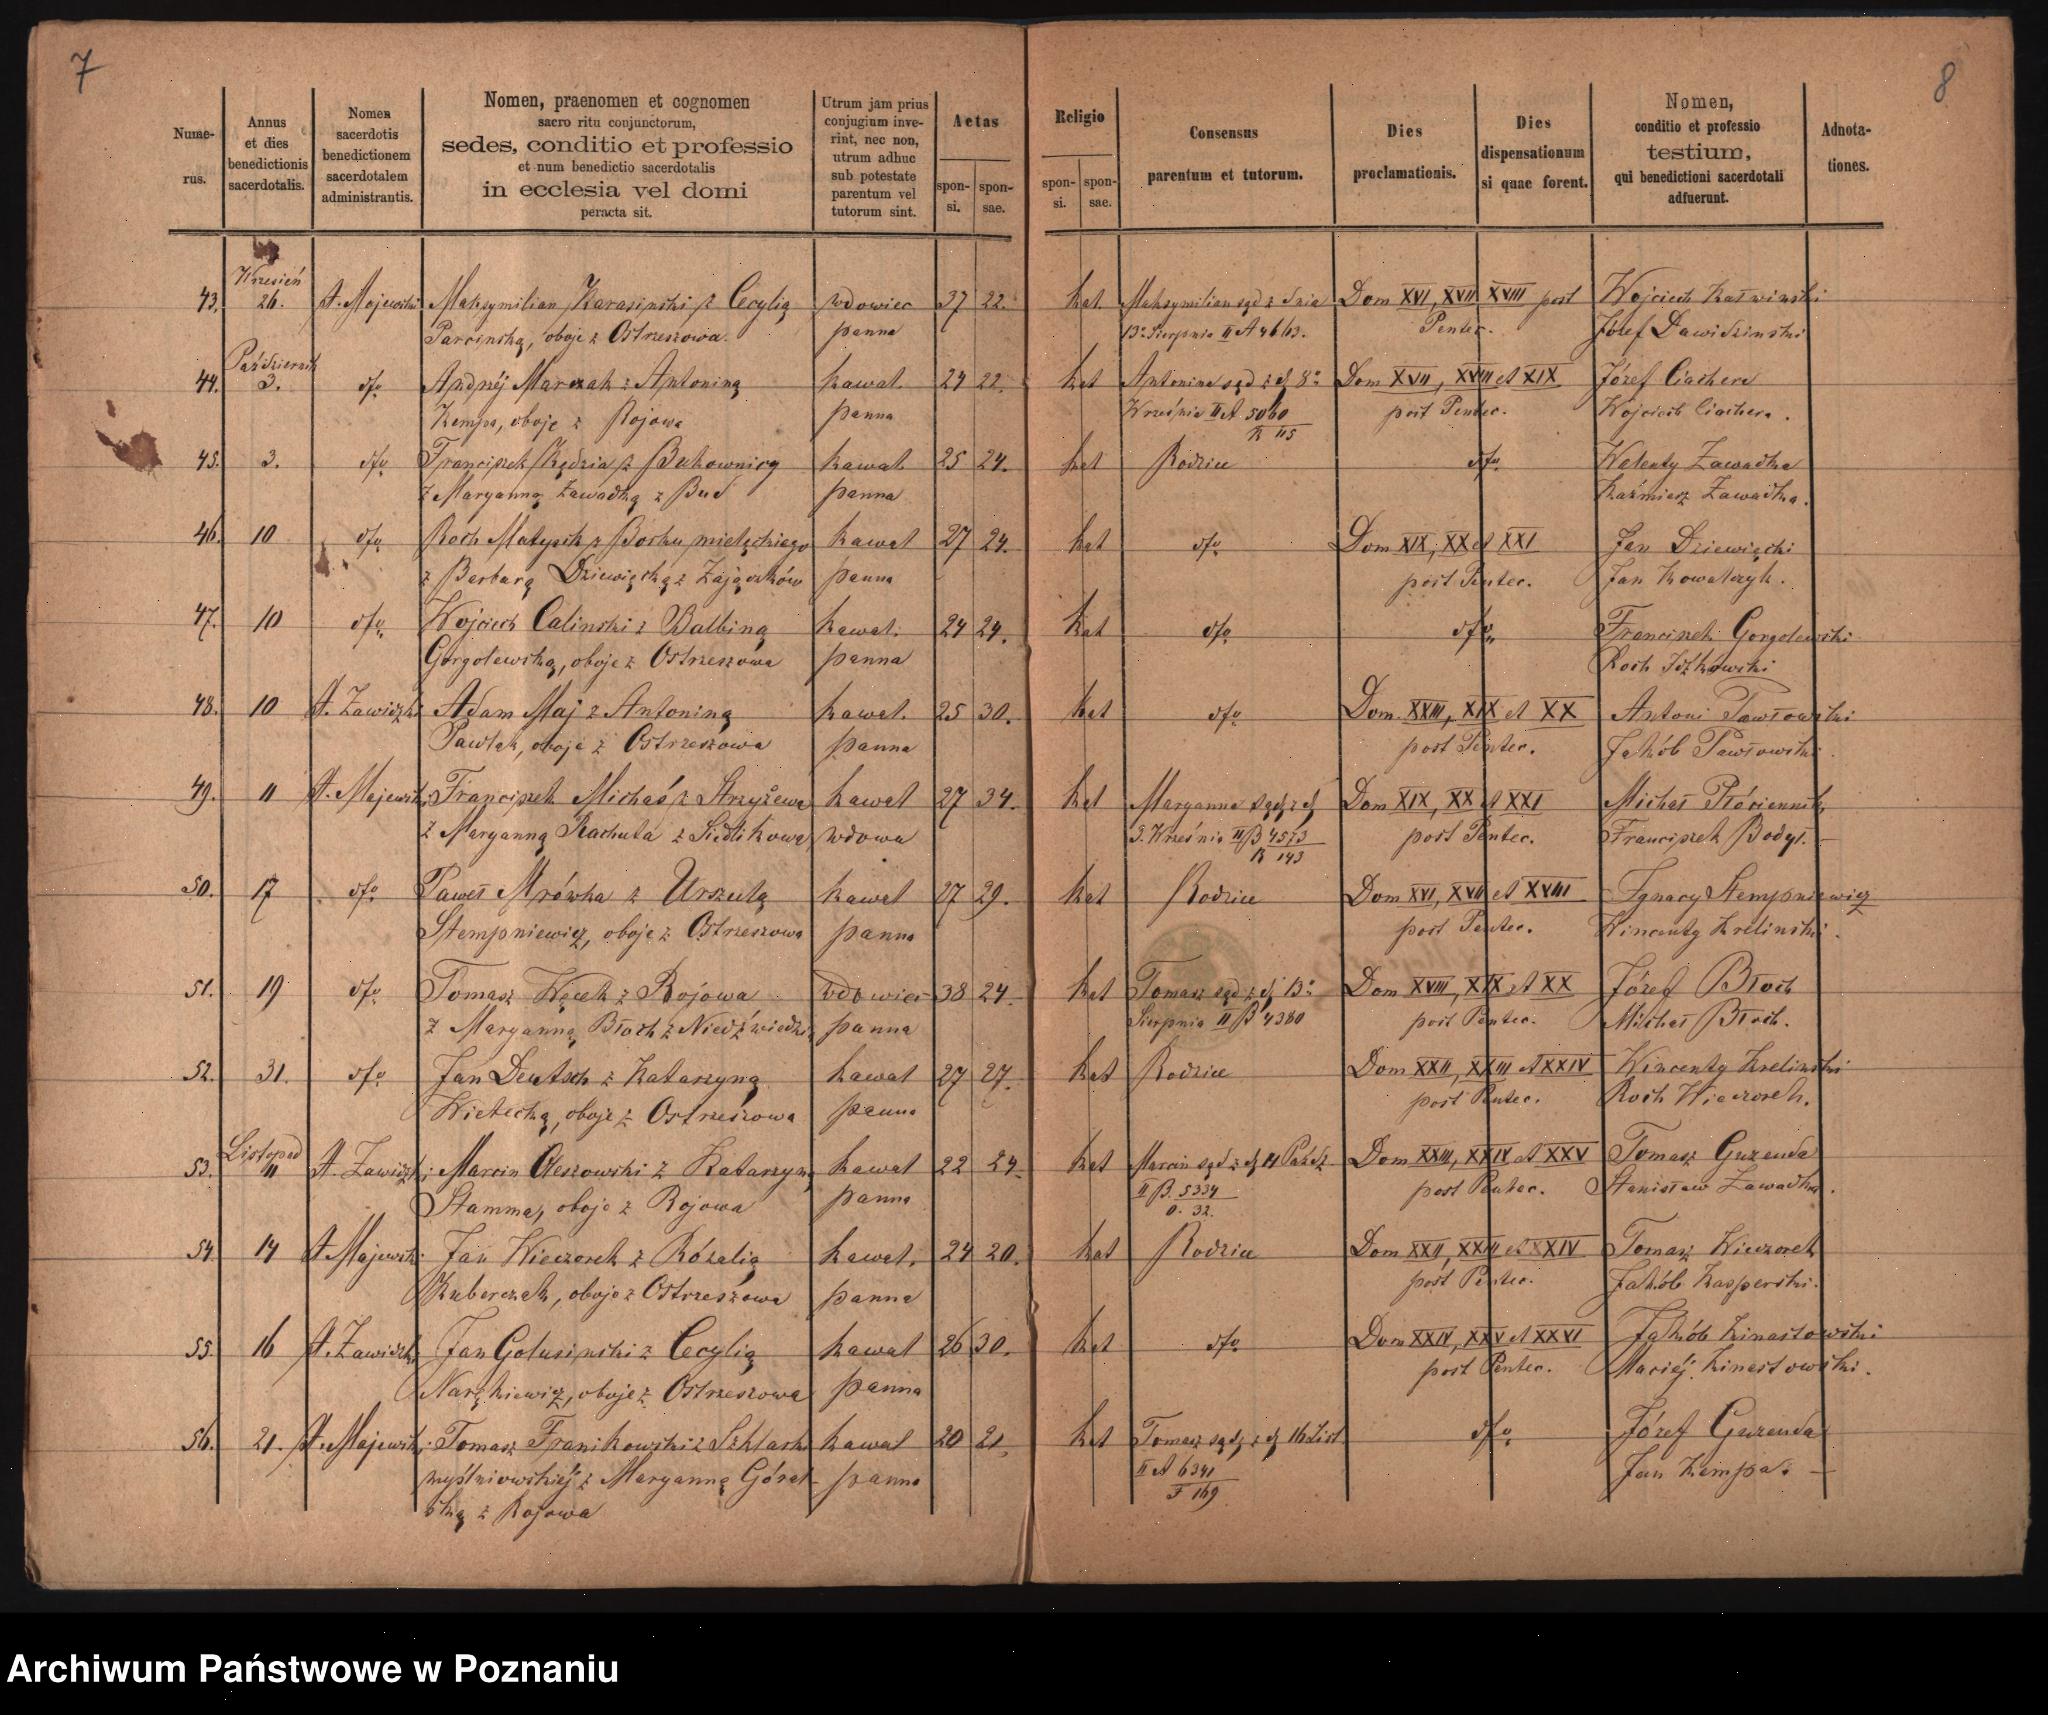 7
8
Nume-
rus.
Annus
et dies
benedictionis
sacerdotalis.
Nomen
sacerdotis
benedictionem
sacerdotalem
administrantis.
Nomen, praenomen et cognomen
sacro ritu conjunctorum,
sedes, conditio et professio
et num benedictio sacerdotalis
in ecclesia vel domi
peracta sit.
Utrum jam prius
conjugium inve-
rint, nec non,
utrum adhuc
sub potestate
parentum vel
tutorum sint.
Aetas
spon-
si.
spon-
sae.
Religio
spon-
si.
spon-
sae.
Consensus
parentum et tutorum.
Dies
proclamationis.
Dies
dispensationum
si quae forent.
Nomen,
conditio et professio
testium,
qui benedictioni sacerdotali
adfuerunt.
Adnota-
tiones.
Wrzesień
43. 26. A. Majewski Maksymilian Karasinski z Cecylią wdowiec 37 22. kat. Maksymilian sąd z dnia Dom XVI, XVII XVIII post Wojciech
Parcinską, oboje z Ostrzeszowa. panna 13º Sierpnia II A 46/13. Pentec. Józef Dawidzinski
Październik
44. 3. dto Andrzéj Marczak z Antoniną kawal. 24 22. kat Antonina sąd z d. 8º Dom XVII, XVIII et XIX Józef Ciachera
Kempa, oboje z Rojowa panna Września II A 5060 post Pentec. Wojciech Ciachera.
K 115
45. 3. dto Franciszek Kędzia z Bukownicy kawal 25 24. kat Rodzice dto Walenty Zawadka
z Maryanną Zawadką z Bud panna Kaźmierz Zawadka.
46. 10 dto Roch Matysik z Borku mielęckiego kawal 27 24. kat dto Dom XIX, XX et XXI Jan Dziewięcki
z Barbarą Dziewięcką z Zajączków panna post Pentec. Jan Kowalczyk.
47. 10 dto Wojciech Calinski z Balbiną kawal. 24 24. kat dto dto Franciszek Gorgolewski
Gorgolewską, oboje z Ostrzeszowa panna Roch
48. 10 A. Zawidzki Adam Maj z Antoniną kawal. 25 30. kat dto Dom. XXIII, XIX et XX Antoni Pawłowski
Pawlak, oboje z Ostrzeszowa panna post Pentec. Jakób Pawłowski.
49. 11 A. Majewski Franciszek Michaś z Strzyżewa kawal 27 34. kat Maryanna sąd z d Dom XIX, XX et XXI Michał Płócienniki
z Maryanną Rachuta z Siedlikowa wdowa 3. Września II B 4573 post Pentec. Franciszek Bodył.
R 143
50. 17 dto Paweł Mrówka z Urszulą kawal 27 29. kat Rodzice Dom XVI, XVII et XVIII Ignacy Stempniewicz
Stempniewicz, oboje z Ostrzeszowa panna post Pentec. Wincenty Krelinski.
51. 19 dto Tomasz Węcek z Rojowa wdowiec 38 24. kat Tomasz sąd z d 13º Dom XVIII, XIX et XX Józef Błoch
z Maryanną Błoch z Niedźwiedzi panna Sierpnia II B 4380 post Pentec. Michał Błoch.
52. 31. dto Jan Deutsch z Katarzyną kawal 27 27. kat Rodzice Dom XXII, XXIII et XXIV Wincenty Krelinski
Wietecką, oboje z Ostrzeszowa panna post Pentec. Roch Wieczorek.
Listopad
53. 11 A. Zawidzki Marcin Oleszowski z Katarzyną kawal 22 24. kat Marcin sąd z d 14 Paźdz Dom XXIII, XXIV et XXV Tomasz Guzenda
Stamma, oboje z Rojowa panna II B. 5334 post Pentec. Stanisław Zawadka.
O. 32.
54. 14 A. Majewski Jan Wieczorek z Rózalią kawal. 24 20. kat Rodzice Dom XXII, XXIII et XXIV Tomasz Wieczorek
Kuberczak, oboje z Ostrzeszowa panna post Pentec. Jakób Kasperski.
55. 16 A. Zawidzki Jan Golusinski z Cecylią kawal 26 30. kat dto Dom XXIV, XXV et XXVI Jakób Kinastowski
Narzkiewicz, oboje z Ostrzeszowa panna post Pentec. Maciéj Kinastowski.
56. 21. A. Majewski Tomasz Franikowski z Szklark kawal 20 21. kat Tomasz sąd z d 16 List dto Józef Guzenda
myślniowskiéj z Maryanną Góral- panna II A 6341 Jan Kempa.
ską z Rojowa F 169
Archiwum Państwowe w Poznaniu